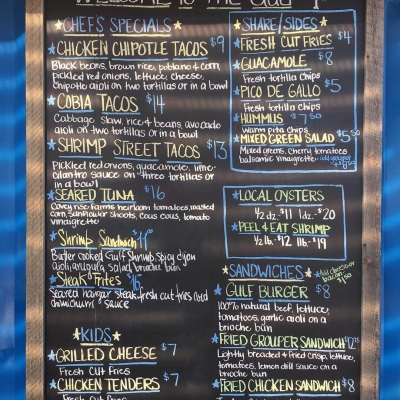 WELCOME TO THE GULF
CHEF'S SPECIALS
CHICKEN CHIPOTLE TACOS $9
Black beans, brown rice, poblano & corn,
pickled red onions, lettuce, cheese,
chipotle aioli on two tortillas or in a bowl
COBIA TACOS $14
Cabbage slaw, rice & beans, avocado
aioli on two tortillas or in a bowl
SHRIMP STREET TACOS $13
Pickled red onions, guacamole, lime-
cilantro sauce on three tortillas or
in a bowl
SEARED TUNA $16
farms heirloom tomatoes, roasted
corn, sunflower shoots, cous cous, tomato
vinaigrette
Shrimp Sandwich $11
Butter cooked Gulf Shrimp, spicy dijon
aioli, arugula salad, brioche bun
Steak Frites $16
Seared hangar steak, fresh cut fries and
chimichurri sauce
KIDS
GRILLED CHEESE $7
Fresh Cut Fries
CHICKEN TENDERS $7
Fresh Cut Fries
SHARE/SIDES
FRESH CUT FRIES $4
GUACAMOLE $8
Fresh tortilla chips
PICO DE GALLO $5
Fresh tortilla chips
HUMMUS $7.50
Warm pita chips
MIXED GREEN SALAD $5.50
Mixed greens, cherry tomatoes
balsamic vinaigrette
LOCAL OYSTERS
1/2 dz. $11 1dz. $20
PEEL & EAT SHRIMP
1/2 lb. $12 1lb. $19
SANDWICHES
Add cheese or bacon
GULF BURGER $8
100% natural beef, lettuce,
tomatoes, garlic aioli on a
brioche bun
FRIED GROUPER SANDWICH
Lightly breaded & fried crisp, lettuce,
tomatoes, lemon dill sauce on a
brioche bun
FRIED CHICKEN SANDWICH $8